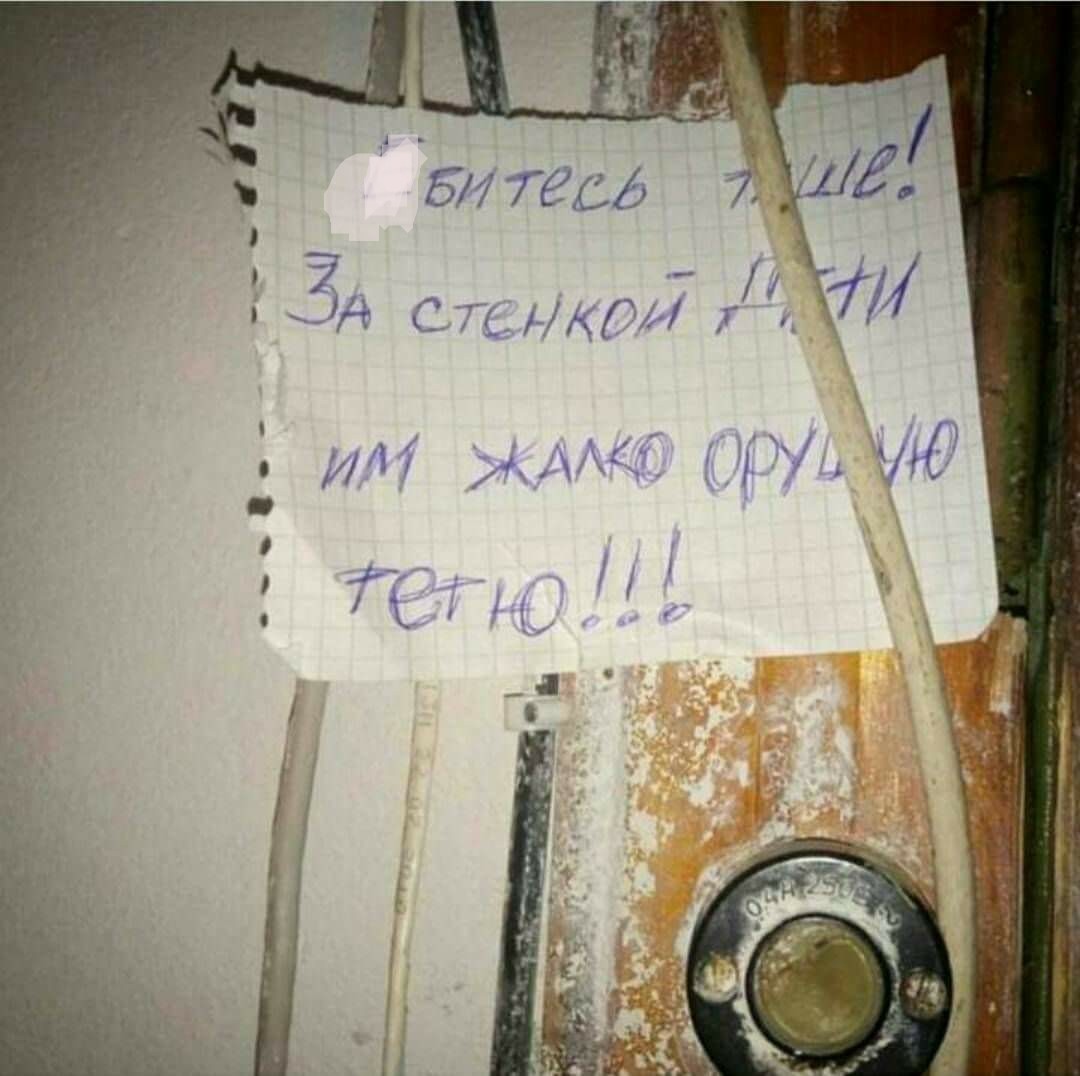 битесь тише!
За стенкой дети
им жалко орущую
тетю!!!
0,4А 250В